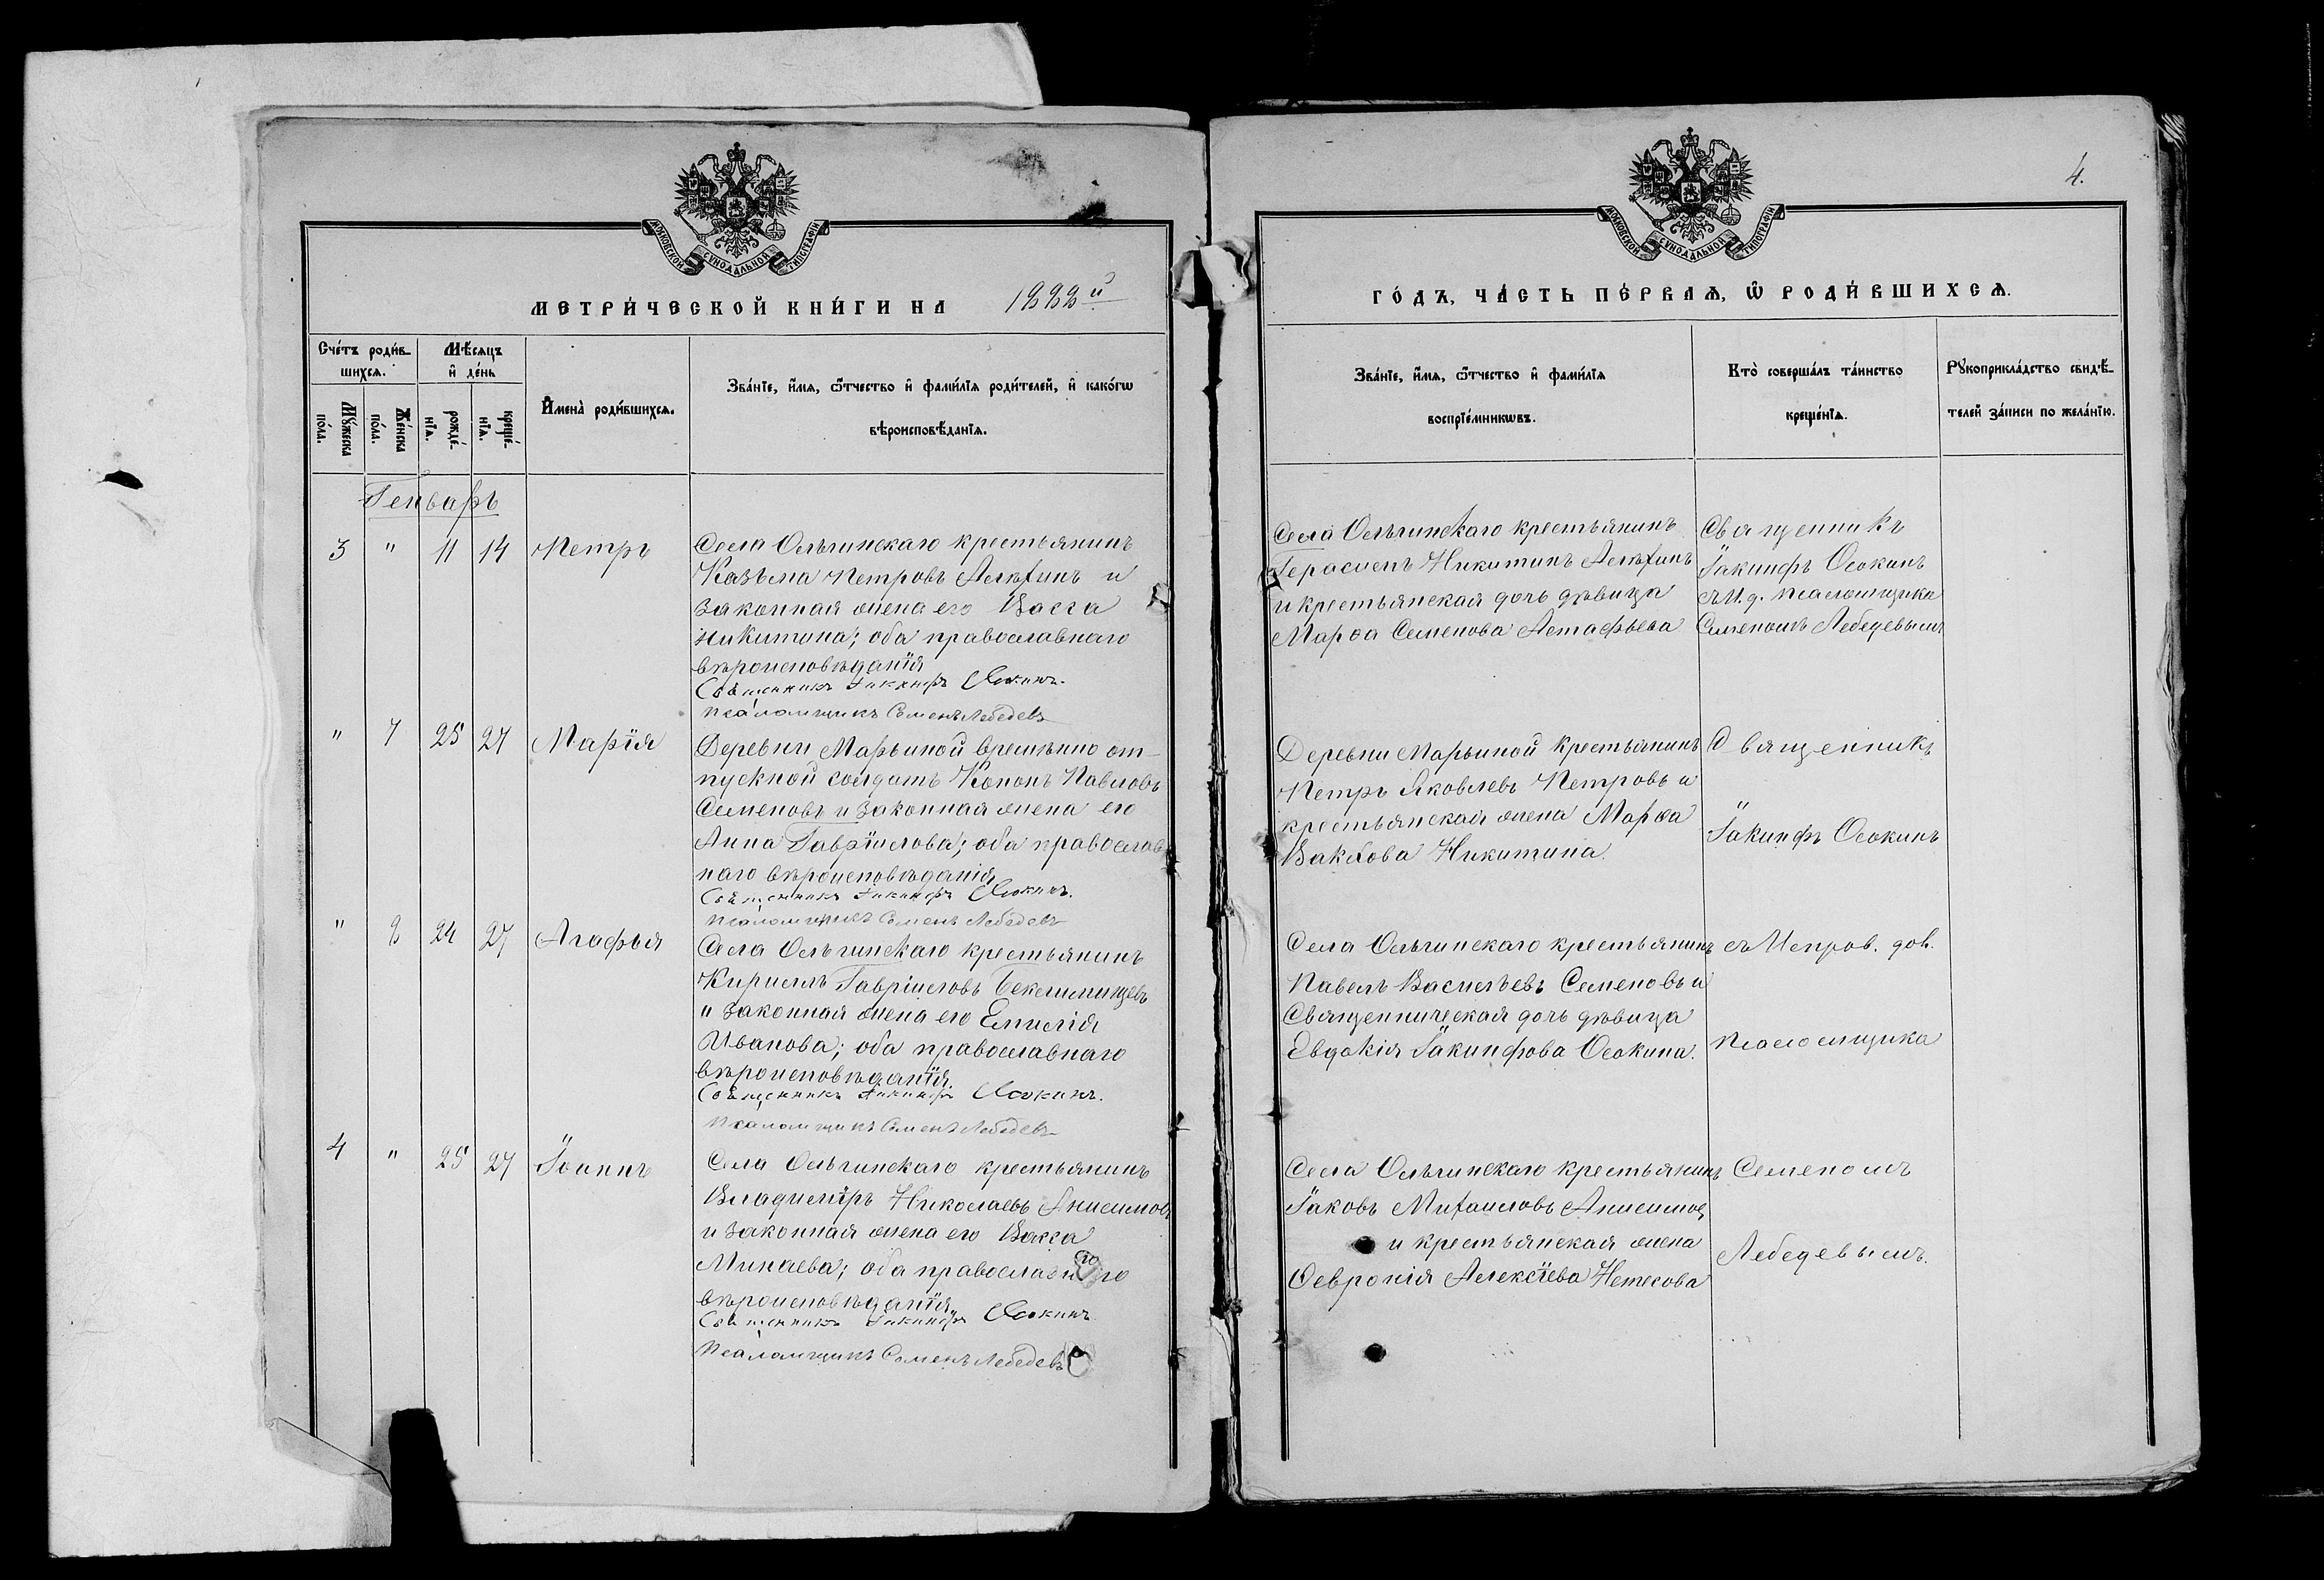 МОСКОВСКОЙ СУНОДАЛЬНОЙ ТИПОГРАФІИ
МЕТРИ́ЧЕСКОЙ КНИ́ГИ НА 1888й
Сче́тъ роди́в-
шихсѧ.
Мѣ́сѧцъ
и҆ де́нь
Мꙋ́жеска
по́ла.
Же́нска
по́ла.
рожде́-
нїѧ.
креще́-
нїѧ.
И҆мена̀ роди́вшихсѧ.
Зва́нїе, и҆́мѧ, ѻ҆́тчество и҆ фами́лїѧ роди́телей, и҆ како́гѡ
вѣроисповѣ́данїѧ.
Генварь
3 " 11 14 Петръ
Села Ольгинскаго крестьянинъ
Казьма Петровъ Алѣхинъ и
законная жена его Васса
Никитина; оба православнаго
вѣроисповѣданія
Священникъ Іакинфъ Осокинъ.
Псаломщикъ Семенъ Лебедевъ
" 7 25 27 Марія
Деревни Марьиной временно от-
пускной солдатъ Кононъ Павловъ
Семеновъ и законная жена его
Анна Гавріилова; оба православ
наго вѣроисповѣданія
Священникъ Іакинфъ Осокинъ.
Псаломщикъ Семенъ Лебедевъ
" 8 24 27 Агафья
Села Ольгинскаго крестьянинъ
Кириллъ Гавріиловъ Бекелмищевъ
и законная жена его Емилія
Иванова; оба православнаго
вѣроисповѣданія.
Священникъ Іакинфъ Осокинъ.
Псаломщикъ Семенъ Лебедевъ
4 " 25 27 Іоаннъ
Села Ольгинскаго крестьянинъ
Владиміръ Николаевъ Анисимовъ
и законная жена его Васса
Минаева; оба православнаго
вѣроисповѣданія
Священникъ Іакинфъ Осокинъ
Псаломщикъ Семенъ Лебедевъ
4.
МОСКОВСКОЙ СУНОДАЛЬНОЙ ТИПОГРАФІИ
ГО́ДЪ, ЧА́СТЬ ПЕ́РВАѦ, Ѽ РОДИ́ВШИХСѦ.
Зва́нїе, и҆́мѧ, ѻ҆́тчество и҆ фами́лїѧ
воспрїе́мникѡвъ.
Кто̀ соверша́лъ та́инство
креще́нїѧ.
Рꙋкоприкла́дство свидѣ́-
телей за́писи по жела́нїю.
Села Ольгинскаго крестьянинъ
Герасимъ Никитинъ Алѣхинъ
и крестьянская дочь дѣвица
Марѳа Семенова Астафьева
Священникъ
Іакинфъ Осокинъ
съ И. д. псаломщика
Семеномъ Лебедевымъ
Деревни Марьиной крестьянинъ
Петръ Яковлевъ Петровъ и
крестьянская жена Марѳа
Вакхова Никитина.
Священникъ
Іакинфъ Осокинъ
Села Ольгинскаго крестьянинъ
Павелъ Васильевъ Семеновъ и
Священническая дочь дѣвица
Евдокія Іакинфова Осокина.
съ Испров. дол.
псаломщика
Села Ольгинскаго крестьянинъ
Іаковъ Михаиловъ Анисимовъ
и крестьянская жена
Ѳевронія Алексіева Нетесова
Семеномъ
Лебедевымъ.